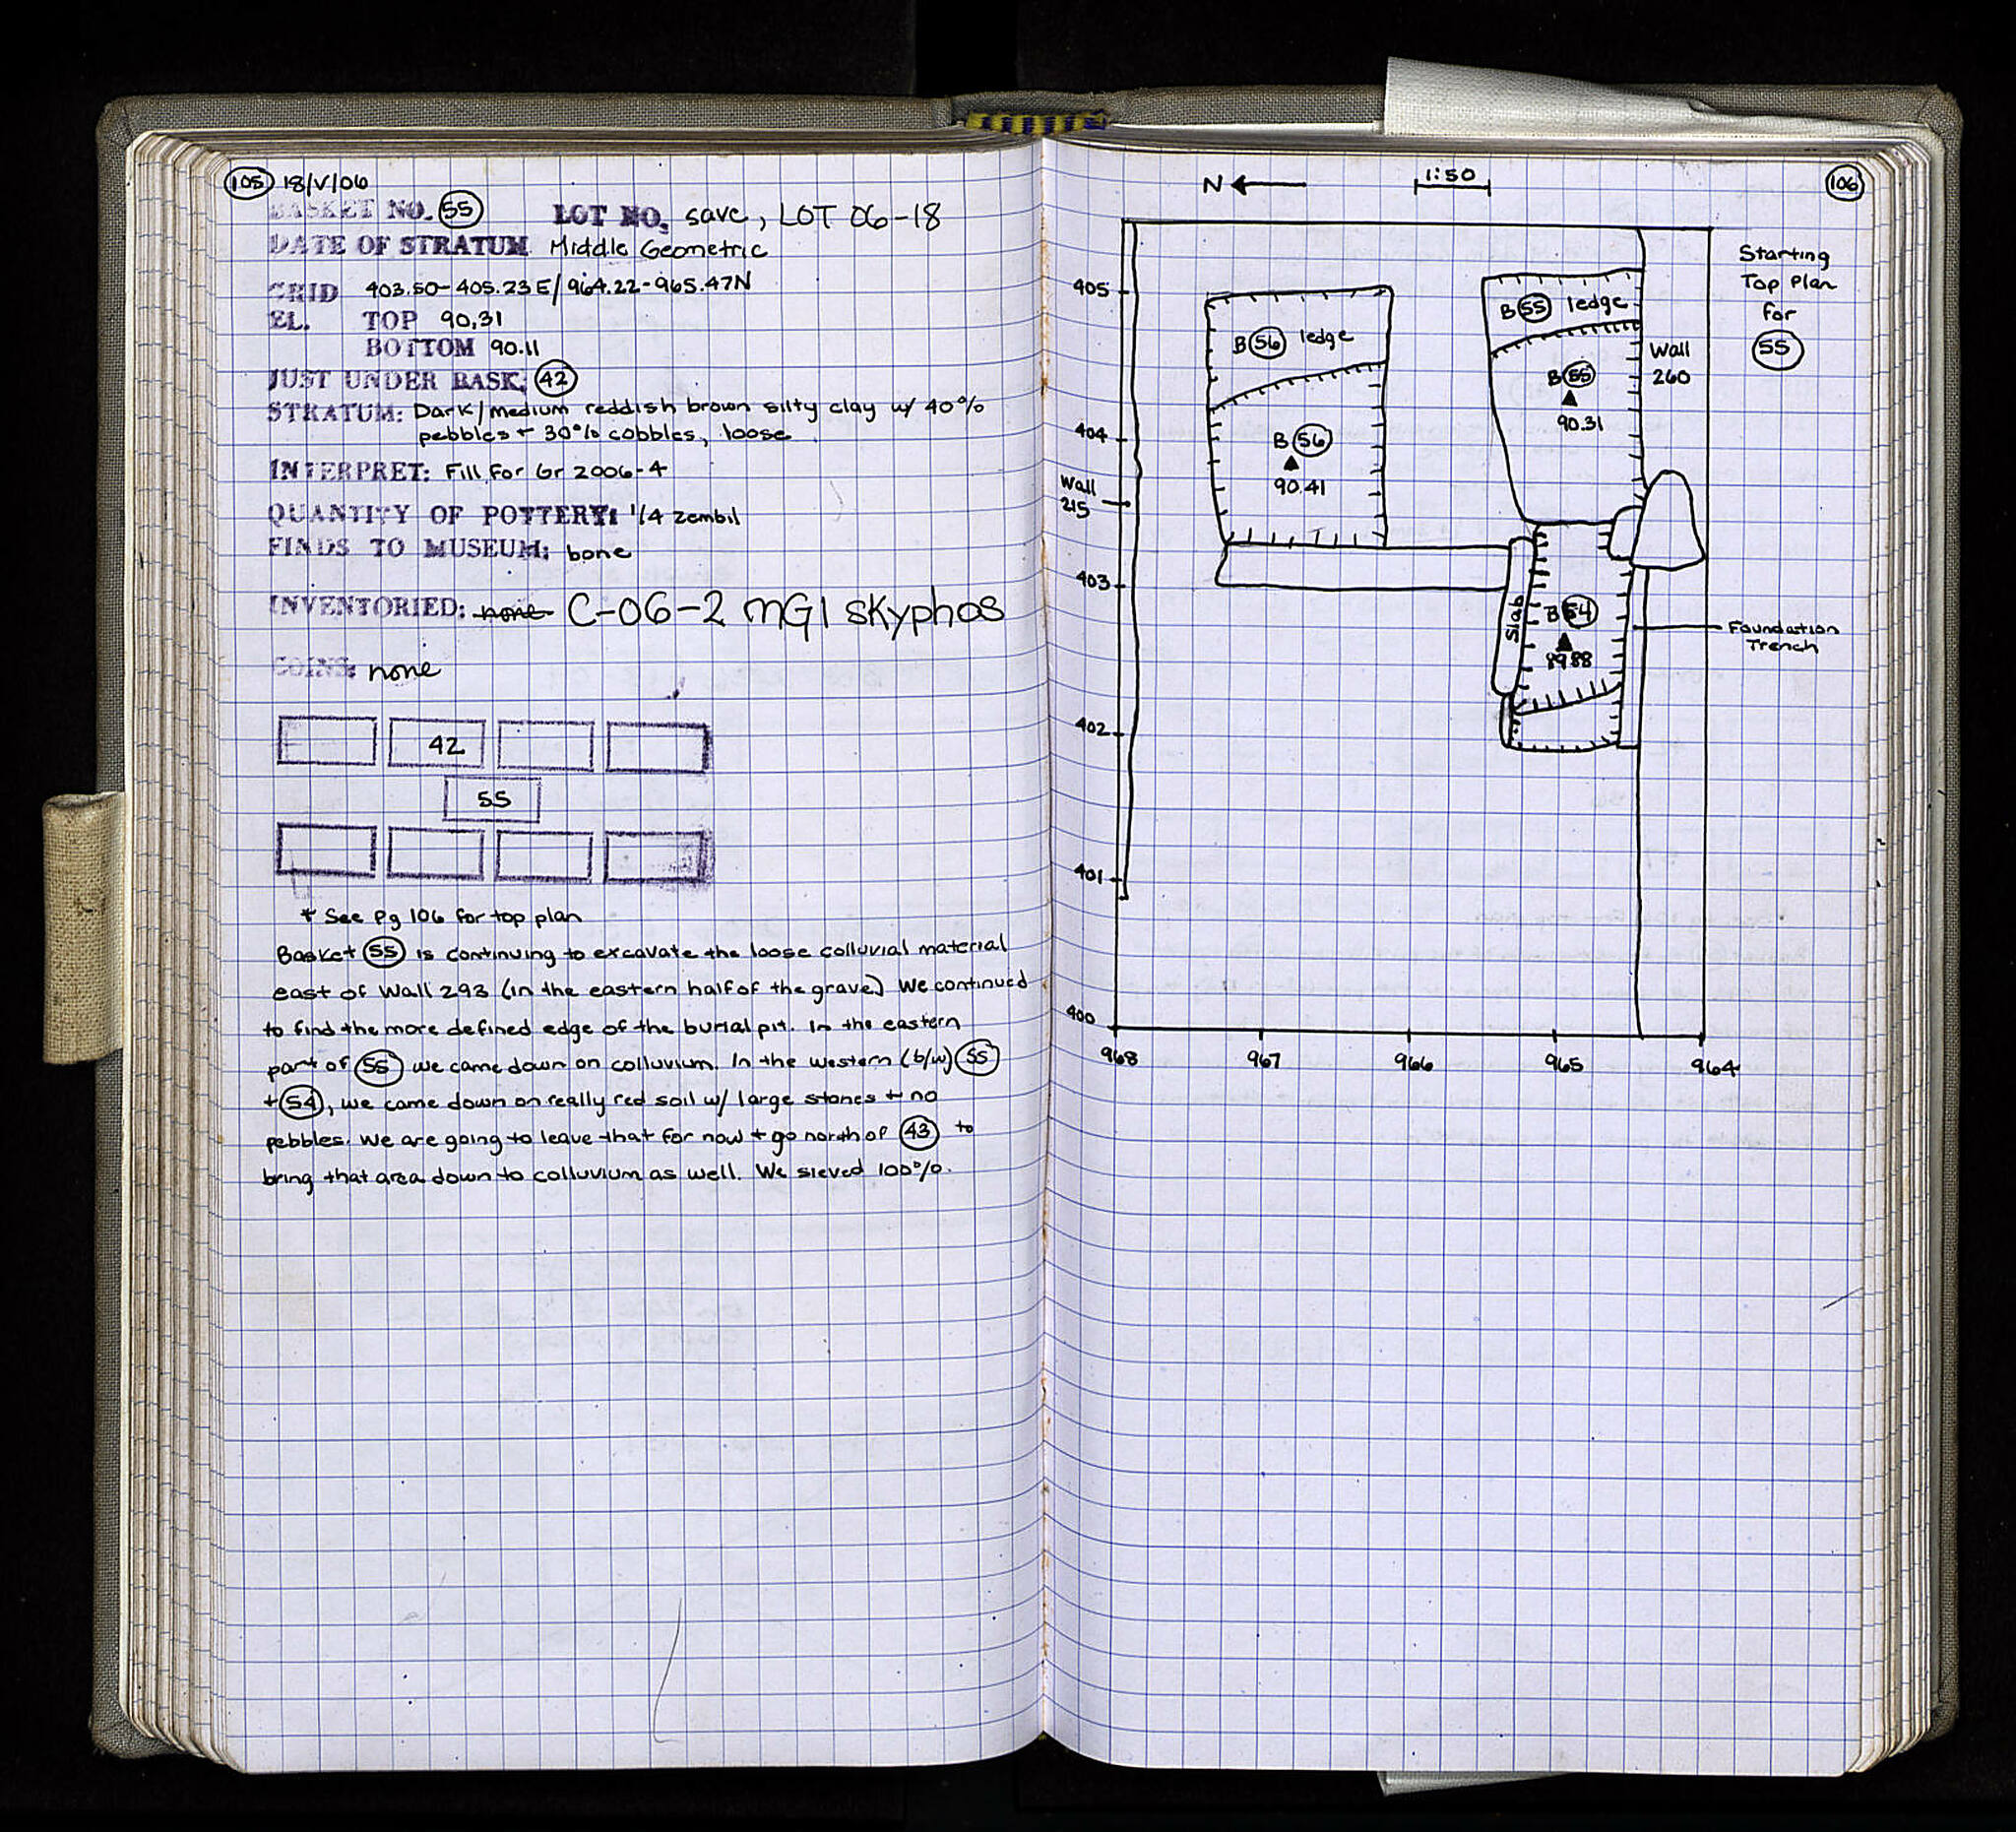 105 18/V/06
BASKET NO. 55 LOT NO. save, LOT 06-18
DATE OF STRATUM Middle Geometric
GRID 403.50-405.23E/964.22-965.47N
EL. TOP 90.31
BOTTOM 90.11
JUST UNDER BASK: 42
STRATUM: Dark/medium reddish brown silty clay w/ 40%
pebbles + 30% cobbles, loose
INTERPRET: Fill for Gr 2006-4
QUANTITY OF POTTERY: 1/4 zembil
FINDS TO MUSEUM: bone
INVENTORIED: none C-06-2 MG I skyphos
COINS: none
42
55
* See pg 106 for top plan
Basket 55 is continuing to excavate the loose colluvial material
east of Wall 293 (in the eastern half of the grave) We continued
to find the more defined edge of the burial pit. In the eastern
part of 55 we came down on colluvium. In the western (b/w) 55
+ 54, we came down on really red soil w/ large stones + no
pebbles. We are going to leave that for now + go north of 43 to
bring that area down to colluvium as well. We sieved 100%.
N 1:50 106
Starting
Top Plan
for
55
405
B 56 ledge
B 55 ledge
Wall
260
B 55
90.31
404
B 56
90.41
Wall
215
403
Slab
B 54
89.88
Foundation
Trench
402
401
400
968 967 966 965 964